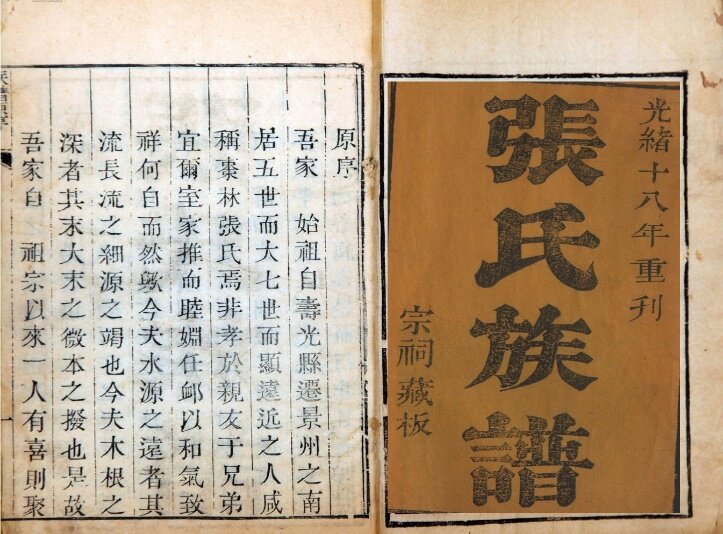 光緒十八年重刊
張氏族譜
宗祠藏板
原序
吾家 始祖自壽光縣遷景州之南
居五世而大七世而顯遠近之人咸
稱棗林張氏焉非孝於親友于兄弟
宜爾室家推而睦婣任卹以和氣致
祥何自而然歟今夫水源之遠者其
流長流之細源之竭也今夫木根之
深者其末大末之微本之撥也是故
吾家自 祖宗以來一人有喜則聚
一